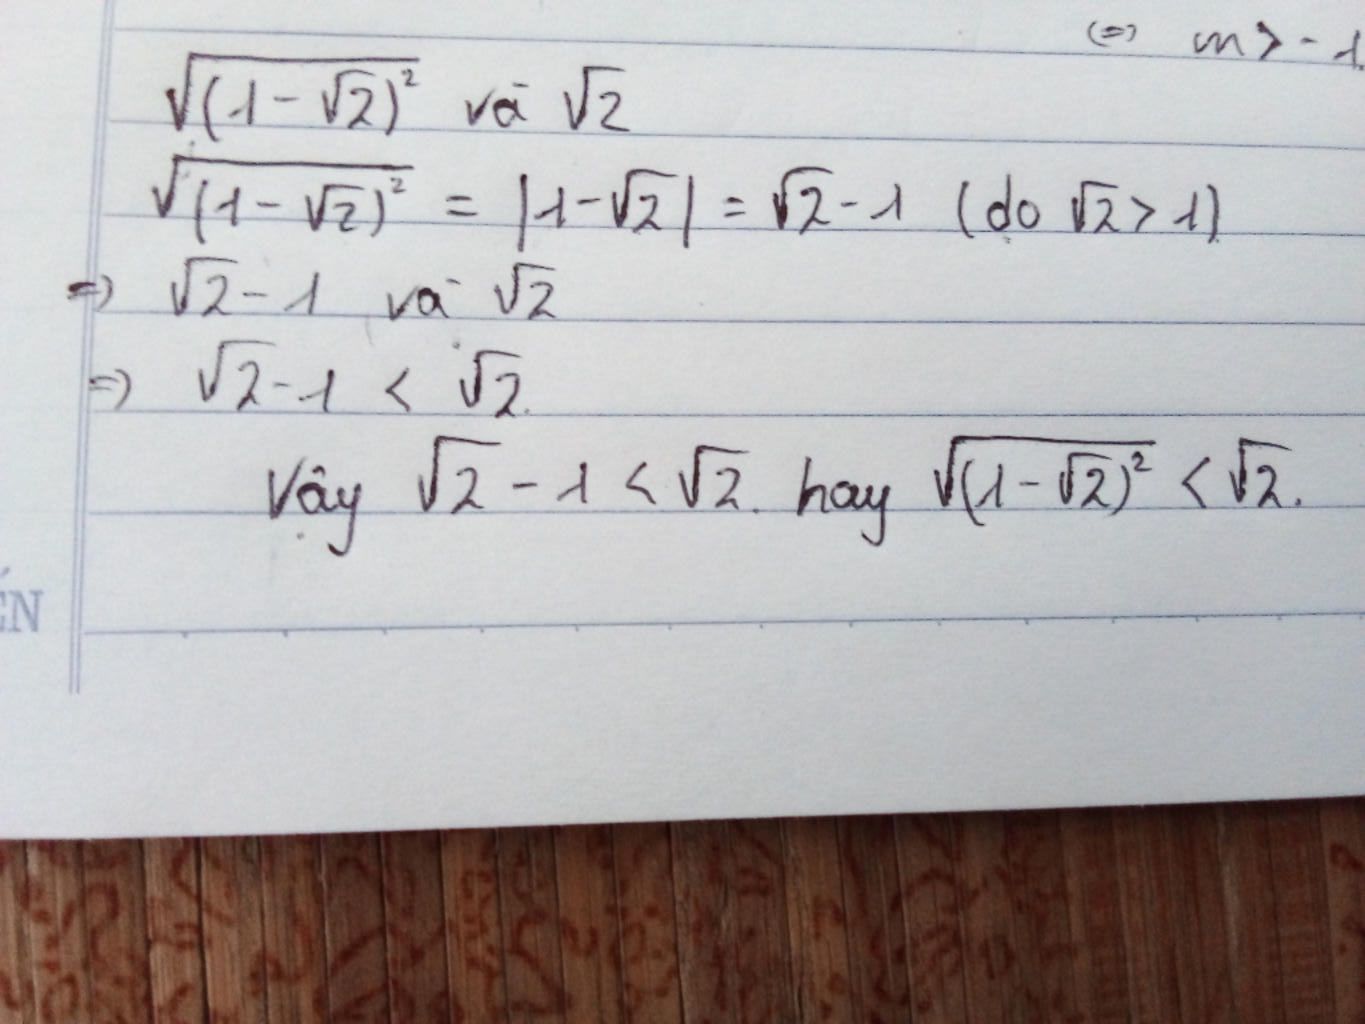 (=) m > -1.
√(1-√2)² và √2
√(1-√2)² = |1-√2| = √2-1 (do √2>1)
=) √2-1 và √2
=) √2-1 < √2.
Vậy √2-1 < √2. hay √(1-√2)² < √2.